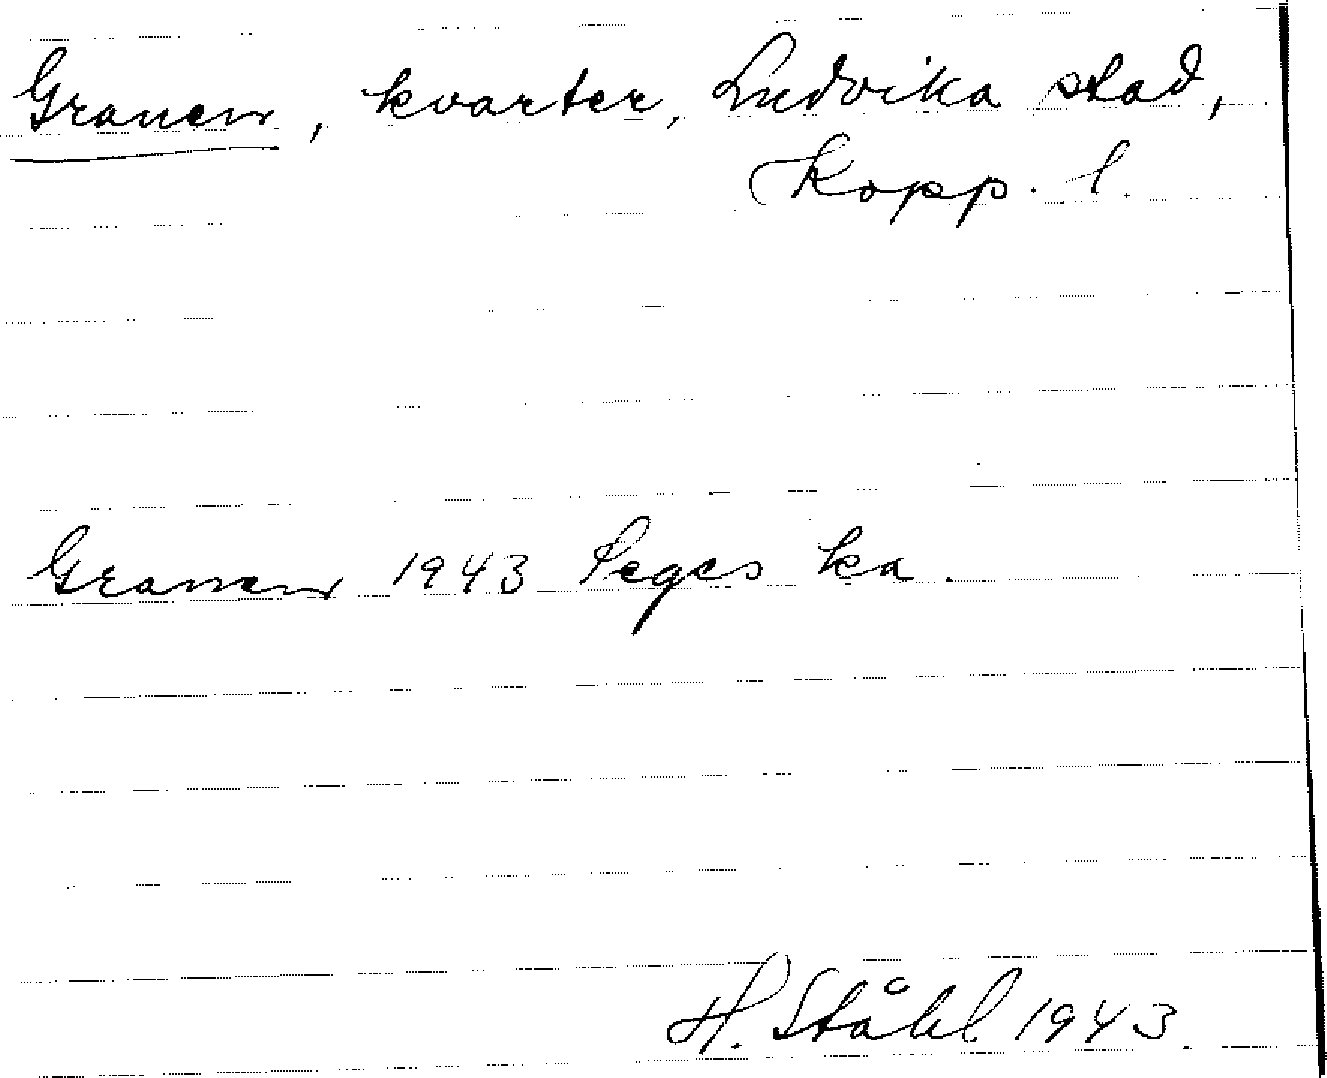 Granen, kvarter, Ludvika stad,
Kopp. l.
Granen 1943 Peges ka.
H. Ståhl 1943.